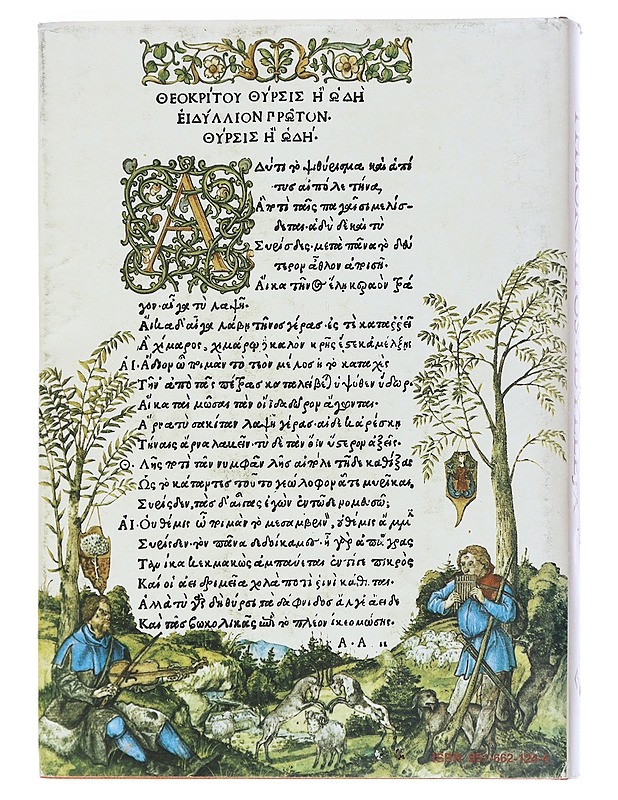 ΘΕΟΚΡΙΤΟΥ ΘΥΡΣΙΣ Ἢ ὨΔΗ
ΕἸΔΥΛΛΙΟΝ ΠΡΩΤΟΝ·
ΘΥΡΣΙΣ Ἢ ὨΔΗ·
Αδύ τι τὸ ψιθύρισμα καὶ ἁ πί
τυς αἰπόλε τήνα,
Ἃ ποτὶ ταῖς παγαῖσι μελίσ-
δεται· ἁδὺ δὲ καὶ τὺ
Συρίσδες· μετὰ πᾶνα τὸ δεύ
τερον ἆθλον ἀποισῇ·
Αἴκα τῆνος ἕλῃ κεραὸν τρά
γον· αἶγα τὺ λαψῇ·
Αἴκα δ' αἶγα λάβῃ τῆνος γέρας· ἐς τὲ καταρρεῖ
Ἁ χίμαρος, χιμάρῳ δὲ καλὸν κρῆς ἔστε κ' ἀμέλξῃς
ΑΙ· Ἅδιον ὦ ποιμὰν τὸ τεὸν μέλος ἢ τὸ καταχὲς
Τῆν' ἀπὸ τᾶς πέτρας καταλείβεται ὑψόθεν ὕδωρ·
Αἴκα ταὶ μῶσαι τὰν οἴιδα δῶρον ἄγωνται·
Ἄρνα τὺ σακίταν λαψῇ γέρας· αἰ δέ κ' ἀρέσκῃ
Τήναις ἄρνα λαβεῖν· τὺ δὲ τὰν ὄϊν ὕστερον ἀξεῖς·
Θ· Λῇς ποτὶ τᾶν νυμφᾶν λῇς αἰπόλε τῇδε καθίξας
Ὡς τὸ κάταντες τοῦτο γεώλοφον ἅτε μυρῖκαι,
Συρίσδεν, τὰς δ' αἶγας ἐγὼν ἐν τῷδε νομευσῶ;
ΑΙ· Οὐ θέμις ὦ ποιμὰν τὸ μεσαμβρινὸν, οὐ θέμις ἄμμιν
Συρίσδεν· τὸν πᾶνα δεδοίκαμες· ἦ γὰρ ἀπ' ἄγρας
Τανίκα κεκμακὼς ἀμπαύεται ἐντί γε πικρὸς
Καί οἱ ἀεὶ δριμεῖα χολὰ ποτὶ ῥινὶ κάθηται·
Ἀλλὰ τὺ γὰρ δὴ θύρσι τὰ δάφνιδος ἄλγε' ἄειδε
Καὶ τᾶς βωκολικᾶς ἐπὶ τὸ πλέον ἵκεο μώσης·
Α·Α ii